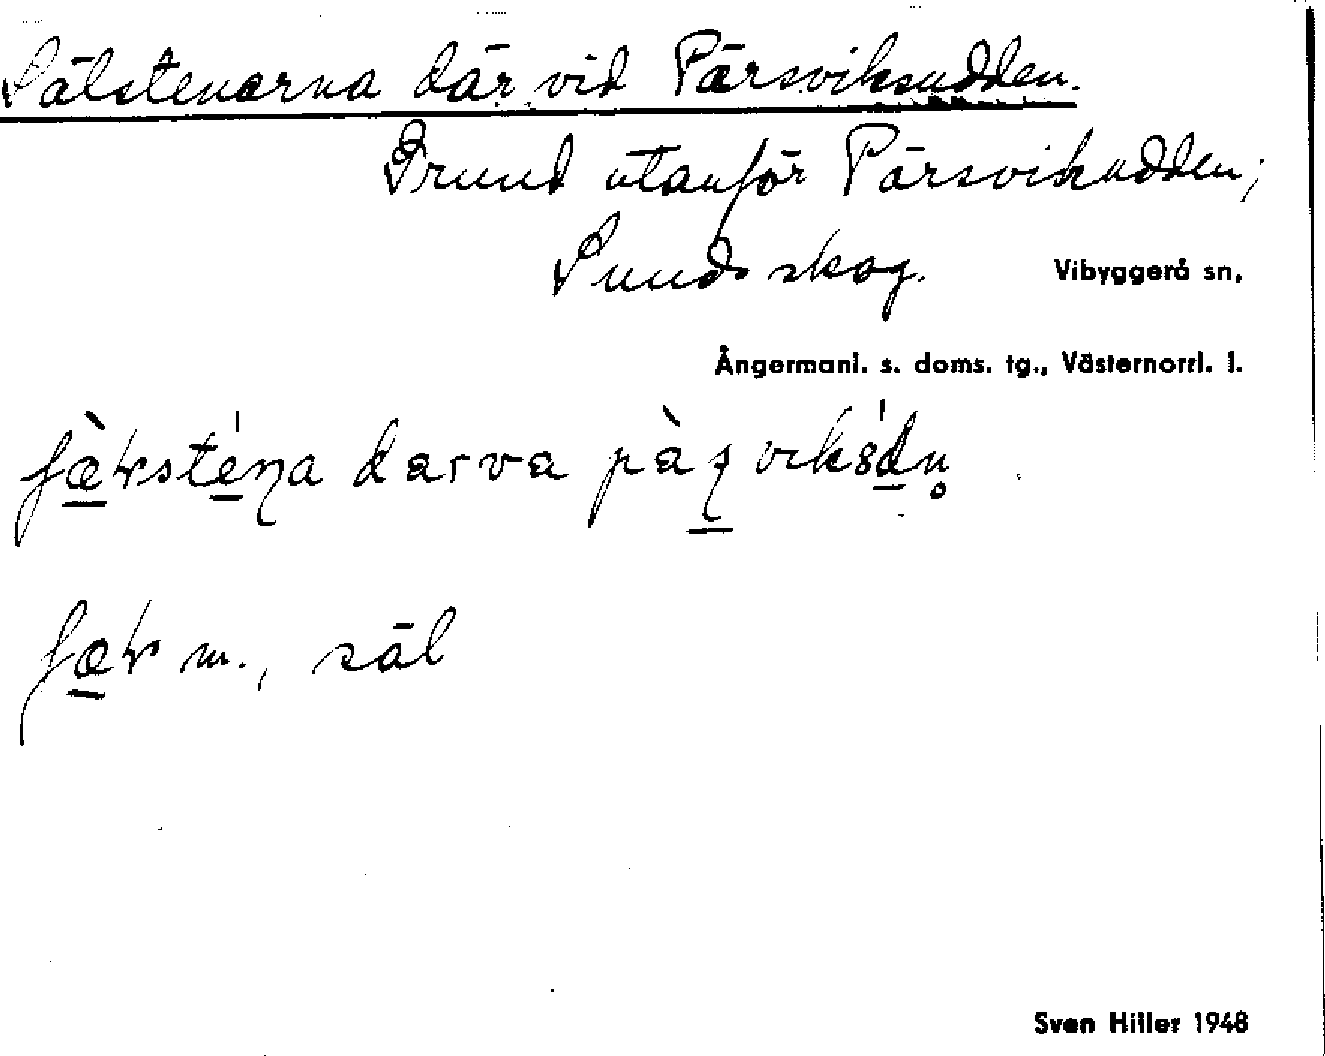 Sälstenarna där vid Pärsviksudden.
Grund utanför Pärsviksudden;
Sundsskog. Vibyggerå sn,
Ångermanl. s. doms. tg., Västernorrl. l.
m., säl
Sven Hiller 1948